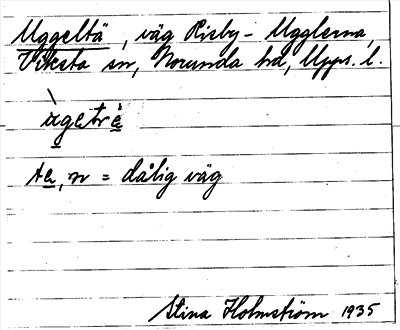 Uggeltä, väg Risby - Ugglerna,
Viksta sn, Norunda hd, Upps. l.
te, n = dålig väg
Stina Holmström 1935